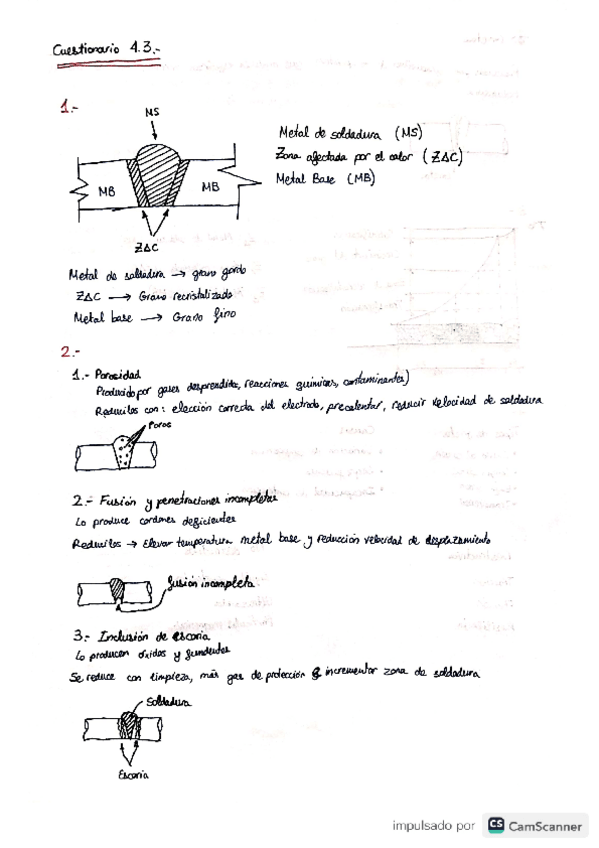 Cuestionario 4.3.-
1.-
MS
Metal de soldadura (MS)
Zona afectada por el calor (ZAC)
Metal Base (MB)
MB
MB
ZAC
Metal de soldadura → grano gordo
ZAC → Grano recristalizado
Metal base → Grano fino
2.-
1.- Porosidad
Producido por gases desprendidos, reacciones químicas, contaminantes)
Reducirlos con: elección correcta del electrodo, precalentar, reducir velocidad de soldadura
Poros
2.- Fusión y penetraciones incompletas
Lo produce cordones deficientes
Reducirlos → Elevar temperatura metal base y reducción velocidad de desplazamiento
fusión incompleta
3.- Inclusión de escoria
Lo producen óxidos y fundentes
Se reduce con limpieza, más gas de protección e incrementar zona de soldadura
Soldadura
Escoria
impulsado por CS CamScanner